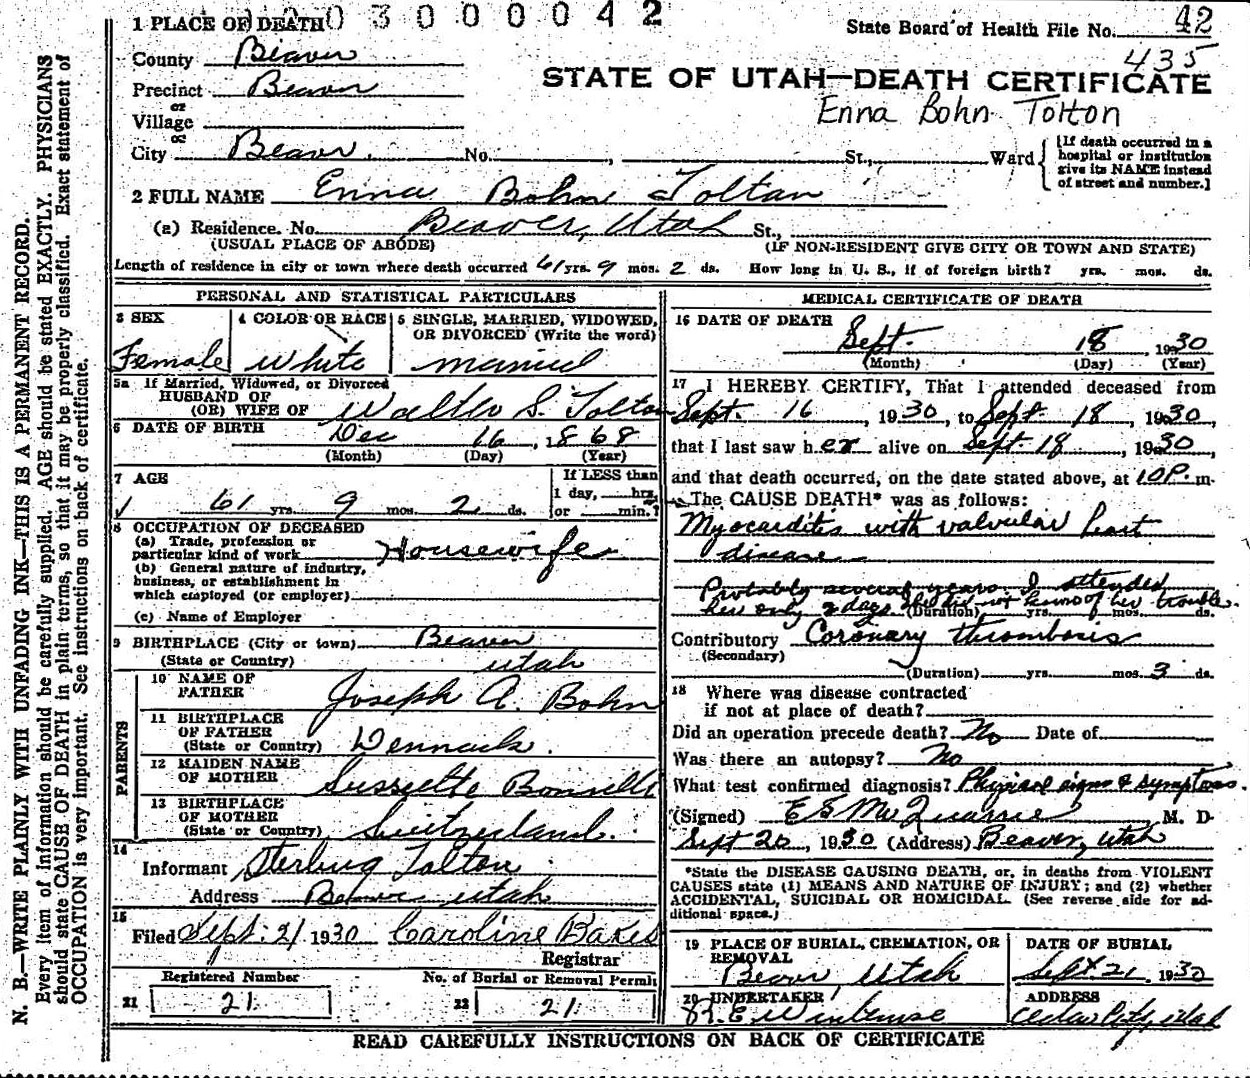 0 3 0 0 0 0 4 2
1 PLACE OF DEATH
State Board of Health File No. 42
435
County Beaver
Precinct Beaver
or
Village
or
City Beaver. No. , St., Ward
[If death occurred in a hospital or institution give its NAME instead of street and number.]
STATE OF UTAH—DEATH CERTIFICATE
Enna Bohn Tolton
2 FULL NAME Enna Bohn Tolton
(a) Residence. No. Beaver, Utah St.,
(USUAL PLACE OF ABODE) (IF NON-RESIDENT GIVE CITY OR TOWN AND STATE)
Length of residence in city or town where death occurred 61 yrs. 9 mos. 2 ds. How long in U. S., if of foreign birth? yrs. mos. ds.
PERSONAL AND STATISTICAL PARTICULARS
3 SEX
Female
4 COLOR OR RACE
White
5 SINGLE, MARRIED, WIDOWED, OR DIVORCED (Write the word)
married
5a If Married, Widowed, or Divorced
HUSBAND OF
(OR) WIFE OF Walter S. Tolton
6 DATE OF BIRTH Dec 16, 1868
(Month) (Day) (Year)
7 AGE
61 yrs. 9 mos. 2 ds.
If LESS than
1 day, hrs.
or min.?
8 OCCUPATION OF DECEASED
(a) Trade, profession or
particular kind of work Housewife
(b) General nature of industry,
business, or establishment in
which employed (or employer)
(c) Name of Employer
9 BIRTHPLACE (City or town) Beaver
(State or Country) Utah
PARENTS
10 NAME OF FATHER Joseph A. Bohn
11 BIRTHPLACE OF FATHER
(State or Country) Denmark.
12 MAIDEN NAME OF MOTHER Sussette Bonnelli
13 BIRTHPLACE OF MOTHER
(State or Country) Switzerland.
14
Informant Sterling Tolton
Address Beaver Utah
15
Filed Sept. 21 1930 Caroline Bakes
Registrar
Registered Number
21 21.
No. of Burial or Removal Permit
22 21.
MEDICAL CERTIFICATE OF DEATH
16 DATE OF DEATH
Sept. 18, 1930
(Month) (Day) (Year)
17 I HEREBY CERTIFY, That I attended deceased from
Sept. 16, 1930, to Sept. 18, 1930,
that I last saw her alive on Sept. 18, 1930,
and that death occurred, on the date stated above, at 10 P. m.
The CAUSE DEATH* was as follows:
Myocarditis with valvular heart
disease
Probably several years. I attended
her only 2 days. She did not know of her trouble.
(Duration) yrs. mos. ds.
Contributory Coronary thrombosis
(Secondary)
(Duration) yrs. mos. 3 ds.
18 Where was disease contracted
if not at place of death?
Did an operation precede death? No Date of
Was there an autopsy? No
What test confirmed diagnosis? Physical signs & symptoms.
(Signed) E S McQuarrie M. D.
Sept 20, 1930 (Address) Beaver, Utah
*State the DISEASE CAUSING DEATH, or, in deaths from VIOLENT
CAUSES state (1) MEANS AND NATURE OF INJURY; and (2) whether
ACCIDENTAL, SUICIDAL OR HOMICIDAL. (See reverse side for ad-
ditional space.)
19 PLACE OF BURIAL, CREMATION, OR REMOVAL
Beaver, Utah
DATE OF BURIAL
Sept 21, 1930
20 UNDERTAKER
ADDRESS
Cedar City, Utah
READ CAREFULLY INSTRUCTIONS ON BACK OF CERTIFICATE
N. B.—WRITE PLAINLY WITH UNFADING INK—THIS IS A PERMANENT RECORD.
Every item of information should be carefully supplied. AGE should be stated EXACTLY. PHYSICIANS
should state CAUSE OF DEATH in plain terms, so that it may be properly classified. Exact statement of
OCCUPATION is very important. See instructions on back of certificate.